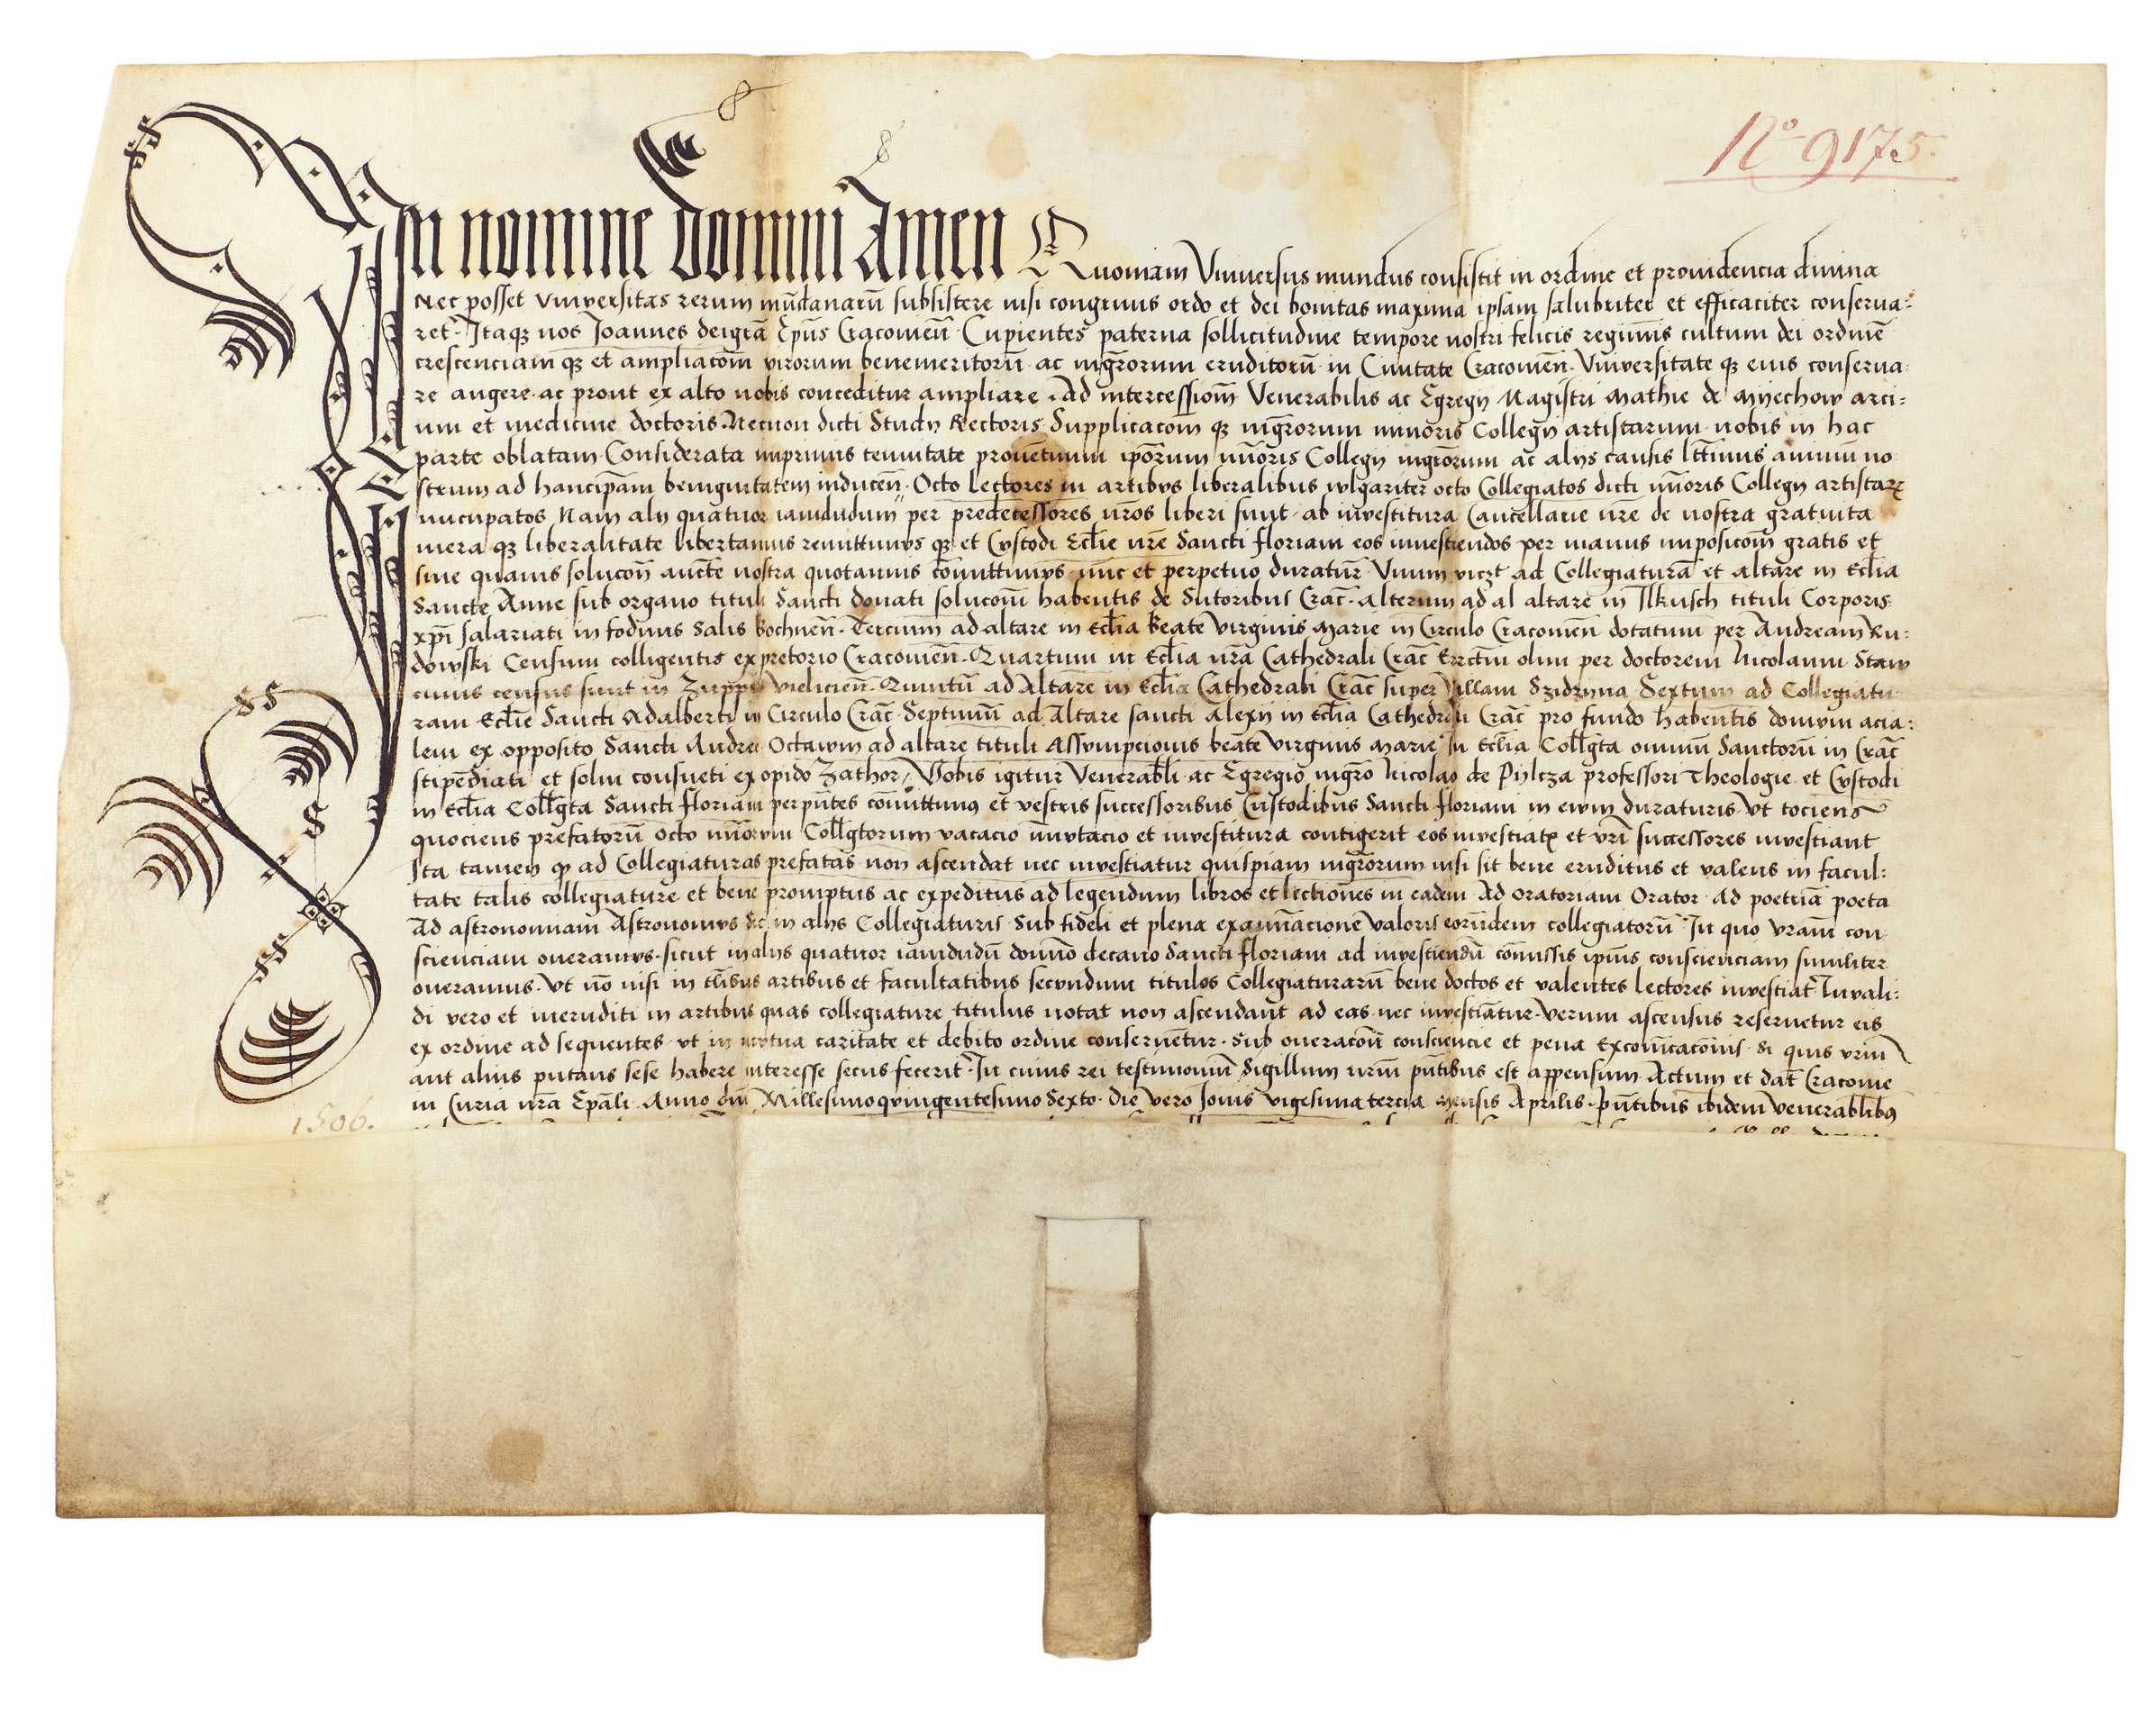 Nº 9175.
In nomine Domini Amen Quoniam Vniuersus mundus consistit in ordine et prouidencia diuina
Nec posset Vniuersitas rerum mūdanarū subsistere nisi congruus ordo et dei bonitas maxima ipsam salubriter et efficaciter conserua:
ret. Itaqꝫ nos Joannes dei gr̄a Ep̄us Cracouien̄. Cupientes paterna sollicitudine tempore nostri felicis regiminis cultum dei ordinē
crescenciam qꝫ et ampliacōm virorum benemeritorū ac mgr̄orum eruditorū in Ciuitate Cracouien̄. Vniuersitate qꝫ eius conserua:
re augere ac prout ex alto nobis conceditur ampliare. Ad intercessiom̄ Venerabilis ac Egregij Magistri Mathie de Myechow arci:
um et medicine doctoris. Necnon dicti Studij Rectoris Supplicacom qꝫ mgr̄orum minoris Collegij artistarum nobis in hac
parte oblatam. Considerata inprimis tenuitate prouētuum ip̄orum mīoris Collegij mgr̄orum ac alijs causis ltt̄imis animū no
strum ad hanc ip̄am benignitatem inducen̄. Octo Lectores in artibus liberalibus wlgariter octo Collegiatos dicti mīoris Collegij artistarꝝ
nūcupatos Nam alij quatuor iamdudum per predecessores nros liberi sunt ab inuestitura Cancellarie nr̄e de nostra gratuita
mera qꝫ liberalitate libertamus remittimus qꝫ et Custodi Eccl̄ie nr̄e Sancti floriani eos inuestiendos per manus imposicom̄ gratis et
sine quauis solucōn̄ aucte nostra quotannis cōmittimus nūc et perpetuo duratur̄. Vnum viczt ad Collegiaturā et altare in Eccl̄ia
Sancte Anne sub organo tituli Sancti donati solucom̄ habentis de Sutoribus Crac̄. Alterum ad al altare in Ilkusch tituli Corporis
xp̄i salariati in fodinis Salis Bochnen̄. Tercium ad altare in Eccl̄ia Beate Virginis Marie in Circulo Cracouien̄ dotatum per Andream Ru:
dowski Censum colligentis ex pretorio Cracouien̄. Quartum in Eccl̄ia nr̄a Cathedrali Crac̄ Erectū olim per doctorem Nicolaum Staw
cuius census sunt in Zuppis Vielicien̄. Quintū ad Altare in Eccl̄ia Cathedrali Crac̄ super Villam Szidzyna Sextum ad Collegiatu
ram Eccl̄ie Sancti Adalberti in Circulo Crac̄. Septimū ad Altare sancti Alexij in Eccl̄ia Cathedrali Crac̄ pro fundo habentis domum acia:
lem ex opposito Sancti Andree Octauum ad altare tituli Assumpcionis beate virginis marie in Eccl̄ia Coll̄gta omniū Sanctorū in Crac̄
stipēdiati et solui consueti ex opido Zathor. Vobis igitur Venerabl̄i ac Egregio mgr̄o Nicolao de Pylcza professori Theologie et Custodi
in Eccl̄ia Coll̄gta Sancti floriani perpn̄tes cōmittimus et vestris successoribus Custodibus Sancti floriani in eum duraturis Vt tociens
quociens prefatorū octo mīorum Coll̄gtorum vacacio īmutacio et inuestitura contigerit eos inuestiatꝭ et vr̄i successores inuestiant
Ita tamen qꝫ ad Collegiaturas prefatas non ascendat nec inuestiatur quispiam mgr̄orum nisi sit bene eruditus et valens in facul:
tate talis collegiature et bene promptus ac expeditus ad legendum libros et lectiones in eadem Ad oratoriam Orator. Ad poetriā poeta
Ad astronomiam Astronomus Sic in alijs Collegiaturis Sub fideli et plena examīacione valoris eorūdem collegiatorū. In quo vr̄am con
scienciam oneramus. sicut in alijs quatuor iamdudū domīo decano Sancti floriani ad inuestiendū cōmissis ipīus conscienciam similiter
oneramus. Vt nō nisi in tl̄ibus artibus et facultatibus secundum titulos Collegiaturarū bene doctos et valentes lectores inuestiat. Inuali:
di vero et ineruditi in artibus quas collegiature titulus notat non ascendant ad eas nec inuestiātur. Verum ascensus reseruetur eis
ex ordine ad sequentes vt in mutua caritate et debito ordine conseruētur. Sub oneracōn̄ consciencie et pena Excōicacōnis. Si quis vr̄m
aut alius putans sese habere interesse secus fecerit. In cuius rei testimoniū Sigillum nr̄m pn̄tibus est appensum. Actum et dat̄ Cracouie
in Curia nr̄a Ep̄ali Anno dn̄i Millesimoquingentesimo Sexto. die vero Jouis vigesima tercia mensis Aprilis. Pn̄tibus ibidem venerabl̄ibus
1506.